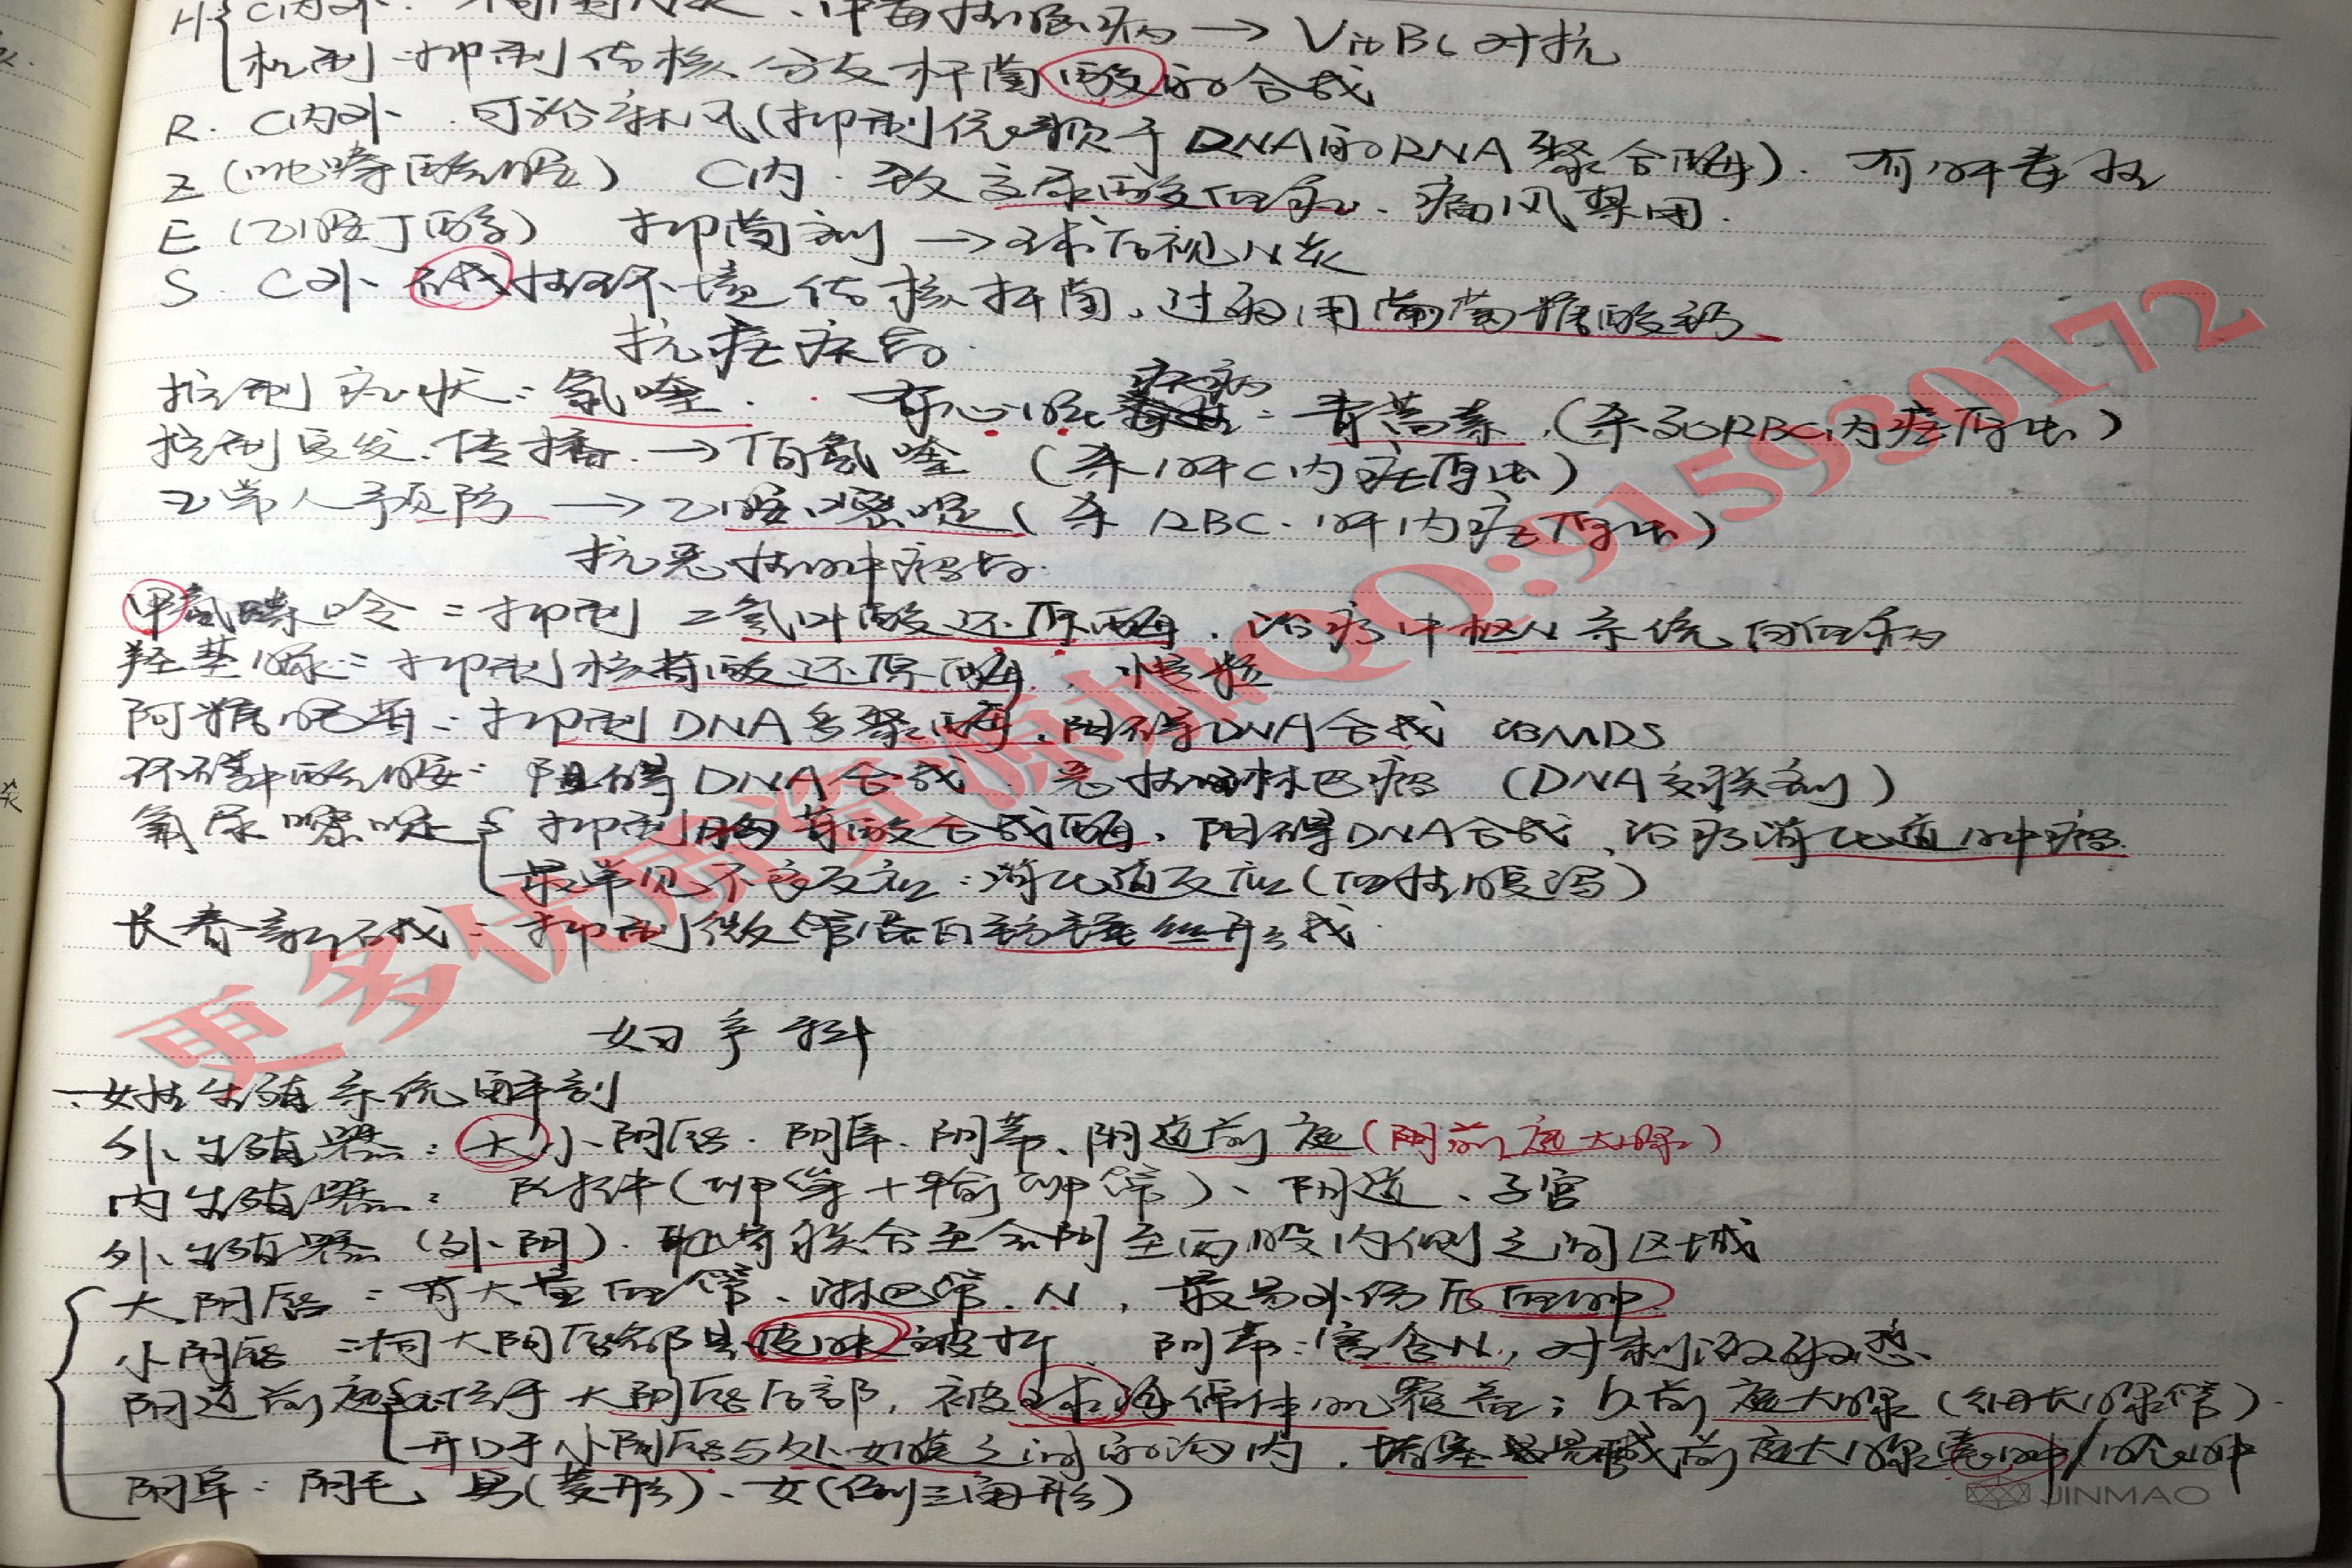 H C内外. 周围N炎、中毒性脑病→VitB6对抗
机制:抑制结核分支杆菌酸的合成
R. C内外. 可治麻风(抑制依赖于DNA的RNA聚合酶). 有肝毒性
Z(吡嗪酰胺) C内. 致高尿酸血症、痛风禁用.
E(乙胺丁醇) 抑菌剂→球后视N炎
S. C外 碱性环境结核杆菌, 过敏用葡萄糖酸钙
抗疟疾药
控制症状:氯喹. 有心脏疾病:青蒿素(杀灭RBC内疟原虫)
控制复发.传播.→伯氨喹(杀肝C内疟原虫)
正常人预防→乙胺嘧啶(杀RBC.肝内疟原虫)
抗恶性肿瘤药
甲氨嘌呤:抑制二氢叶酸还原酶. 治疗中枢N系统白血病
羟基脲:抑制核苷酸还原酶. 慢粒
阿糖胞苷:抑制DNA多聚酶. 阻碍DNA合成 治MDS
环磷酰胺:阻碍DNA合成 恶性淋巴瘤(DNA交联剂)
氟尿嘧啶 抑制胸苷酸合成酶. 阻碍DNA合成、治疗消化道肿瘤.
最常见不良反应:消化道反应(血性腹泻)
长春新碱:抑制微管蛋白纺锤丝形成.
妇产科
一.女性生殖系统解剖
外生殖器:大小阴唇.阴阜.阴蒂、阴道前庭(阴前庭大腺)
内生殖器:附件(卵巢+输卵管)、阴道、子宫
外生殖器(外阴).耻骨联合至会阴至两股内侧之间区域
大阴唇:有大量血管、淋巴管.N, 最易外伤后血肿
小阴唇:相大阴唇部是皮肤皱折 阴蒂:富含N, 对刺激敏感.
阴道前庭 位于大阴唇后部, 被球海绵体肌覆盖;以前庭大腺(细长腺管).
开口于小阴唇与处女膜之间的沟内. 堵塞易形成前庭大腺囊肿/脓肿
阴阜:阴毛 男(菱形)、女(倒三角形)
更多优质资源加QQ:915930172
JINMAO